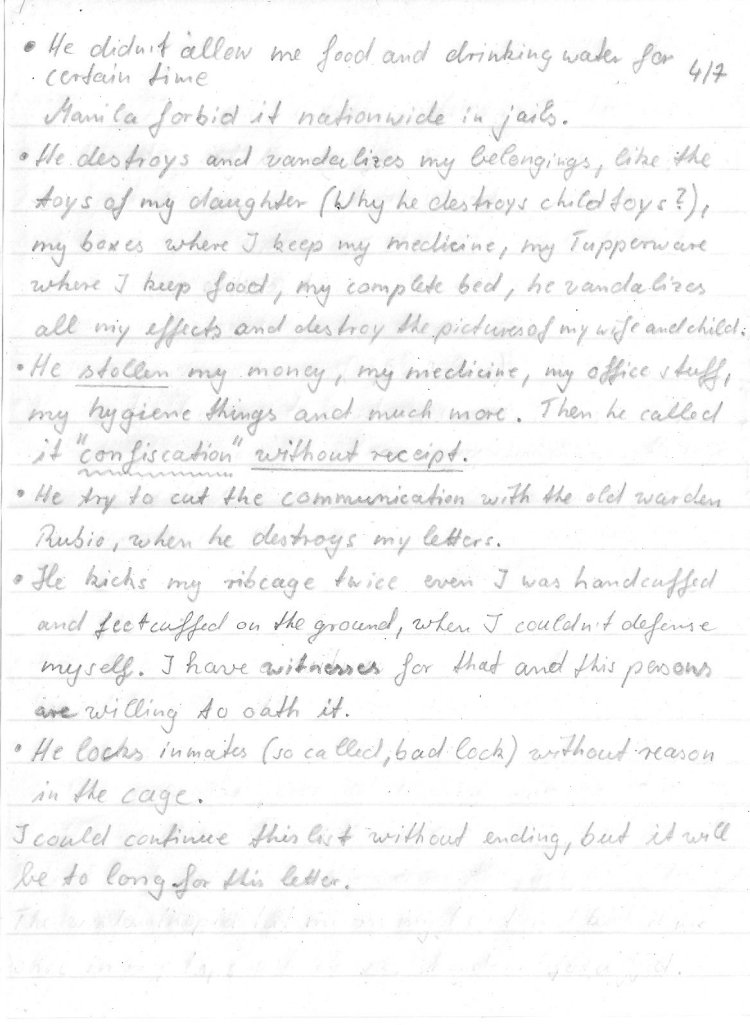 • He didn't allow me food and drinking water for
certain time 4/7
Manila forbid it nationwide in jails.
• He destroys and vandalizes my belongings, like the
toys of my daughter (Why he destroys child toys?),
my boxes where I keep my medicine, my Tupperware
where I keep food, my complete bed, he vandalizes
all my effects and destroy the pictures of my wife and child.
• He stollen my money, my medicine, my office stuff,
my hygiene things and much more. Then he called
it "confiscation" without receipt.
• He try to cut the communication with the old warden
Rubio, when he destroys my letters.
• He kicks my ribcage twice even I was handcuffed
and feetcuffed on the ground, when I couldn't defense
myself. I have witnesses for that and this persons
are willing to oath it.
• He locks inmates (so called, bad lock) without reason
in the cage.
I could continue this list without ending, but it will
be to long for this letter.